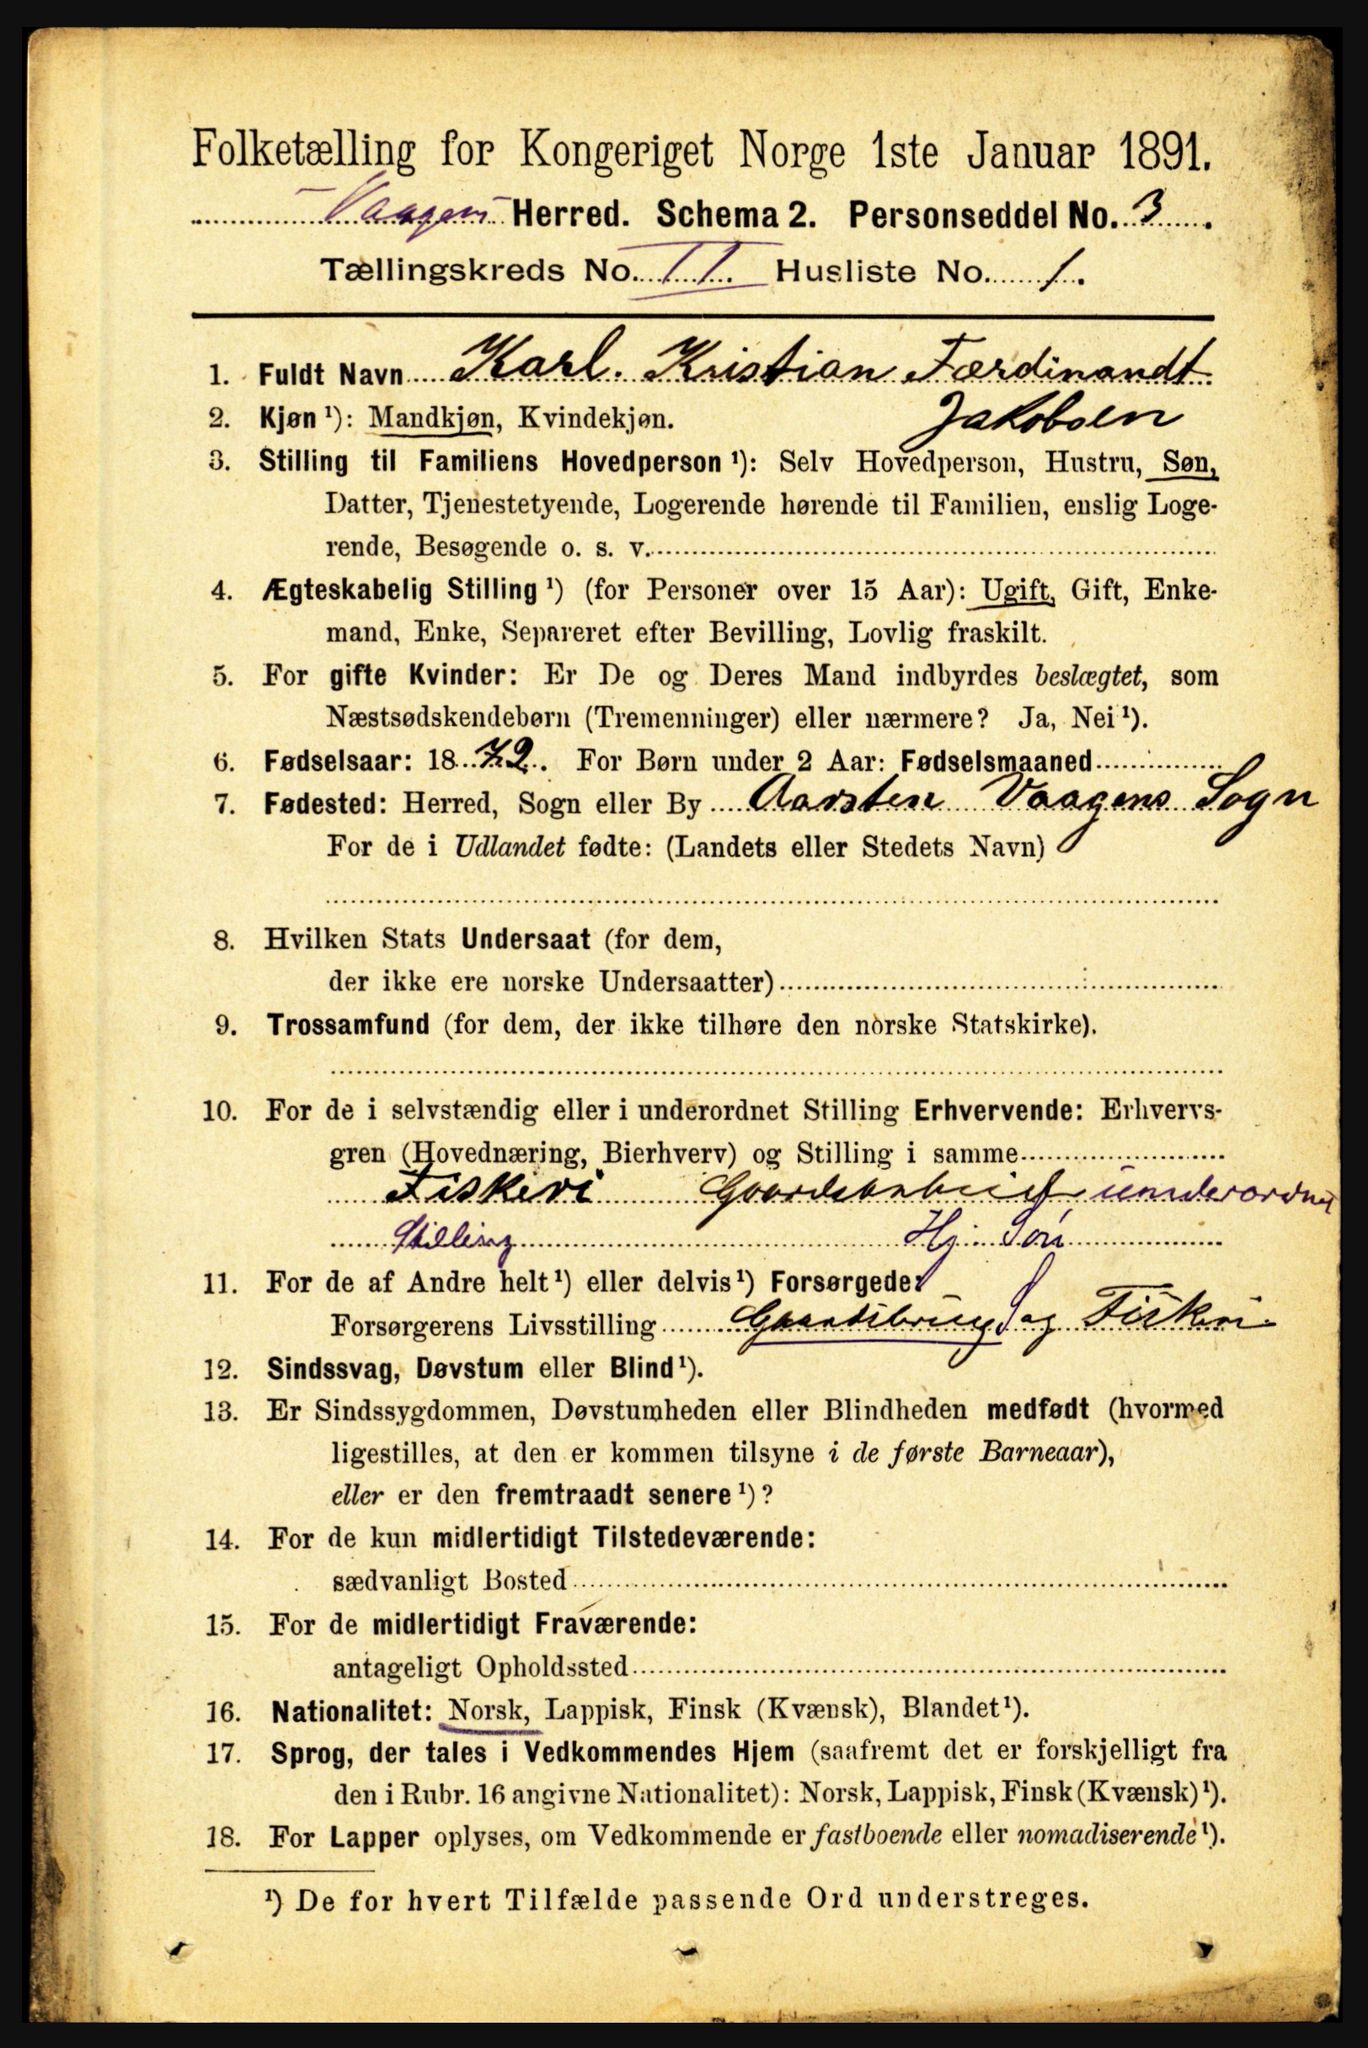 Folketælling for Kongeriget Norge 1ste Januar 1891.
Vaagens Herred. Schema 2. Personseddel No. 3.
Tællingskreds No. II. Husliste No. 1.
1. Fuldt Navn Karl. Kristian Færdinandt
Jakobsen
2. Kjøn ¹): Mandkjøn, Kvindekjøn.
3. Stilling til Familiens Hovedperson ¹): Selv Hovedperson, Hustru, Søn,
Datter, Tjenestetyende, Logerende hørende til Familien, enslig Loge-
rende, Besøgende o. s. v.
4. Ægteskabelig Stilling ¹) (for Personer over 15 Aar): Ugift, Gift, Enke-
mand, Enke, Separeret efter Bevilling, Lovlig fraskilt.
5. For gifte Kvinder: Er De og Deres Mand indbyrdes beslægtet, som
Næstsødskendebørn (Tremenninger) eller nærmere? Ja, Nei ¹).
6. Fødselsaar: 1872. For Børn under 2 Aar: Fødselsmaaned
7. Fødested: Herred, Sogn eller By Aarsten Vaagens Sogn
For de i Udlandet fødte: (Landets eller Stedets Navn)
8. Hvilken Stats Undersaat (for dem,
der ikke ere norske Undersaatter)
9. Trossamfund (for dem, der ikke tilhøre den norske Statskirke).
10. For de i selvstændig eller i underordnet Stilling Erhvervende: Erhvervs-
gren (Hovednæring, Bierhverv) og Stilling i samme
Fiskeri Gaardsarbeid underordnet
Stilling Hj. Søn
11. For de af Andre helt ¹) eller delvis ¹) Forsørgede:
Forsørgerens Livsstilling Gaardsbrug og Fiskeri.
12. Sindssvag, Døvstum eller Blind ¹).
13. Er Sindssygdommen, Døvstumheden eller Blindheden medfødt (hvormed
ligestilles, at den er kommen tilsyne i de første Barneaar),
eller er den fremtraadt senere ¹)?
14. For de kun midlertidigt Tilstedeværende:
sædvanligt Bosted
15. For de midlertidigt Fraværende:
antageligt Opholdssted
16. Nationalitet: Norsk, Lappisk, Finsk (Kvænsk), Blandet ¹).
17. Sprog, der tales i Vedkommendes Hjem (saafremt det er forskjelligt fra
den i Rubr. 16 angivne Nationalitet): Norsk, Lappisk, Finsk (Kvænsk) ¹).
18. For Lapper oplyses, om Vedkommende er fastboende eller nomadiserende ¹).
¹) De for hvert Tilfælde passende Ord understreges.